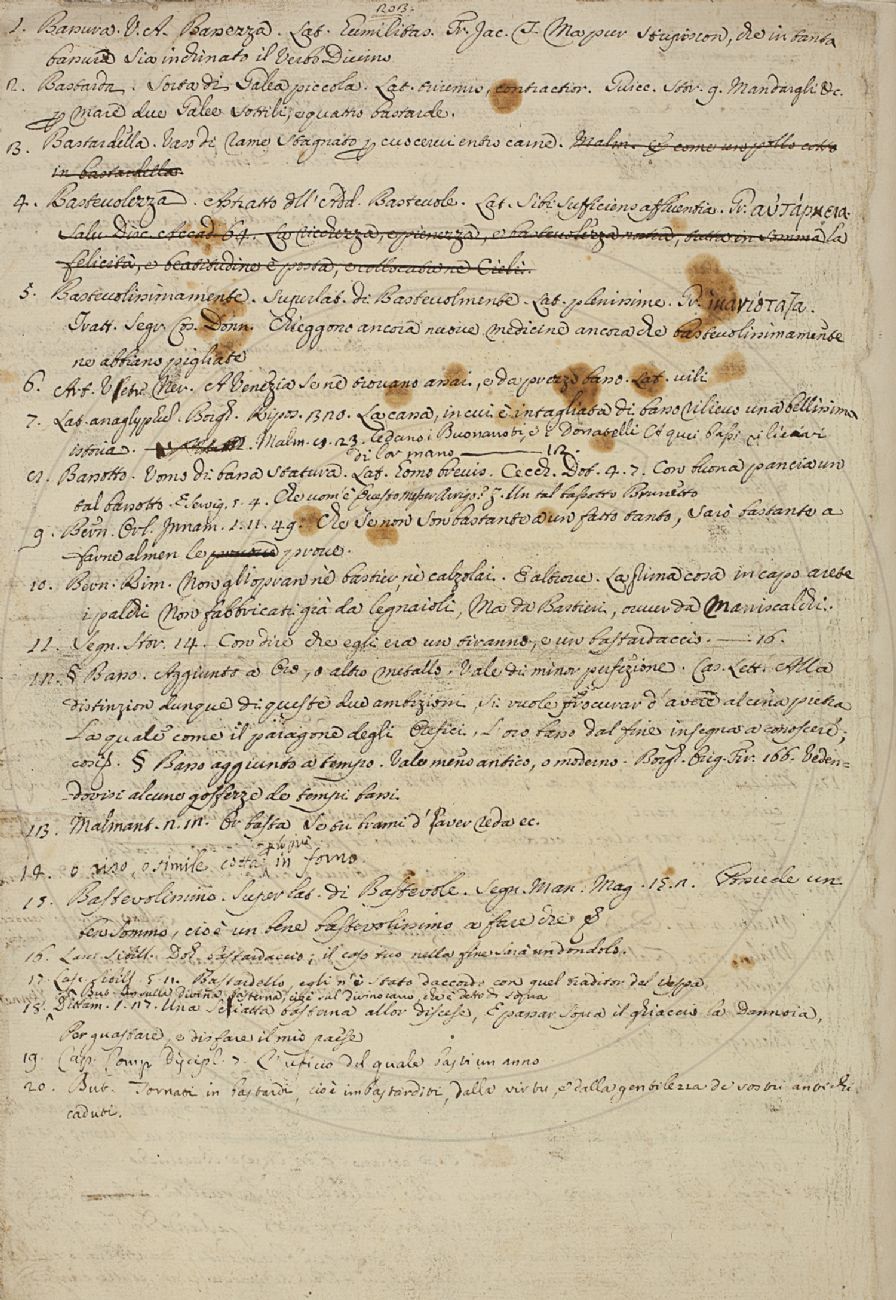 203.
1. Bassura. V. A. Bassezza. Lat. humilitas. Fr. Jac. T. Ma pur stupiscon, che in tanta
bassura sia inchinato il Verbo Divino
2. Bastarda. Sorta di Galea piccola. Lat. triremis contractior. Guicc. Stor. 9. Mandargli &c.
p mare due Galee sottili, e quattro bastarde.
3. Bastardella. Vaso di rame stagnato p cuocervi entro carne. Malm. E come un pollo cotto
in bastardella.
4. Bastevolezza. Astratto dell' Add. Bastevole. Lat. sibi sufficiens affluentia. Gr. αὐτάρκεια.
Salv. Disc. Accad. 64. La ricchezza, e pienezza, e bastevolezza nostra, tutta in somma la
felicità, e beatitudine è posta, e collocata ne Cieli.
5. Bastevolissimamente. Superlat. di Bastevolmente. Lat. plenissime. Gr. ἱκανώτατα.
Tratt. Segr. Cos. Donn. Chieggono ancora nuove medicine ancora che bastevolissimamente
ne abbiano pigliate
6. Art. Vetr. Ner. A Venezia se ne trovano assai, e da prezzo basso. Lat. vili
7. Lat. anaglypha. Borgh. Ripos. 1320. La cassa, in cui è intagliata di basso rilievo una bellissima
istoria. Malm. 8. 23. Cedano i Buonarroti, e i Donatelli A quei bassi rilievi
di lor mano 12.
8. Bassotto. Uomo di bassa statura. Lat. homo brevis. Cecch. Dot. 4. 7. Con buona pancia un
tal bassotto. E Servig. 5. 4. Che uom' è questo messer Arrigo? Z. Un tal bassotto Brunetto
9. Bern. Orl. Innam. 1. 11. 49. Che se non son bastante a un fatto tanto, Sarò bastante a
farne almen le prove.
10. Bern. Rim. Non gli opran nè bastier, nè calzolai. E altrove. La prima cosa in capo avete
i palchi Non fabbricati già da legnaioli, Ma da Bastieri, ovver da Maniscalchi.
11. Segn. Stor. 14. Con dire che egli era un tiranno, e un bastardaccio. 16.
12. § Basso. Aggiunto a Oro, o altro metallo, Vale di minor perfezione. Cas. Lett. Alla
distinzion dunque di queste due ambizioni, si vuole procurar d'avere alcuna pietra
La quale come il paragone degli Orefici, L'oro basso dal fine insegna a conoscere;
così p. § Basso aggiunto a tempo. Vale meno antico, o moderno. Borgh. Orig. Fir. 166. Veden-
dovisi alcune gofferze de tempi bassi.
13. Malmant. 2. 12. Or basta se tu brami d'haver reda ec.
14. o vaso, o simile cotta in forno
15. Bastevolissimo. Superlat. di Bastevole. Segn. Man. Mag. 15. 2. Possiede un
ben sommo, cioè un bene bastevolissimo a fare che p
16. Lasc. Sibill. Doh bastardaccio; il capo tuo nella fine sarà un dondolo.
17. Lasc. Sibill. 5. 11. Bastardello, egli n'è stato daccordo con quel traditor del Vespa
18. Dittam. 1. 27. Una schiatta basterna allor discese, E passar sopra il ghiaccio la Dannoia,
Per guastare, e disfare il mio paese
19. Cap. Comp. Discipl. 7. L'uficio del quale basti un anno
20. But. Tornati in bastardi, cioè imbastarditi, dalla virtù, e dalla gentilezza de vostri antichi
caduti.